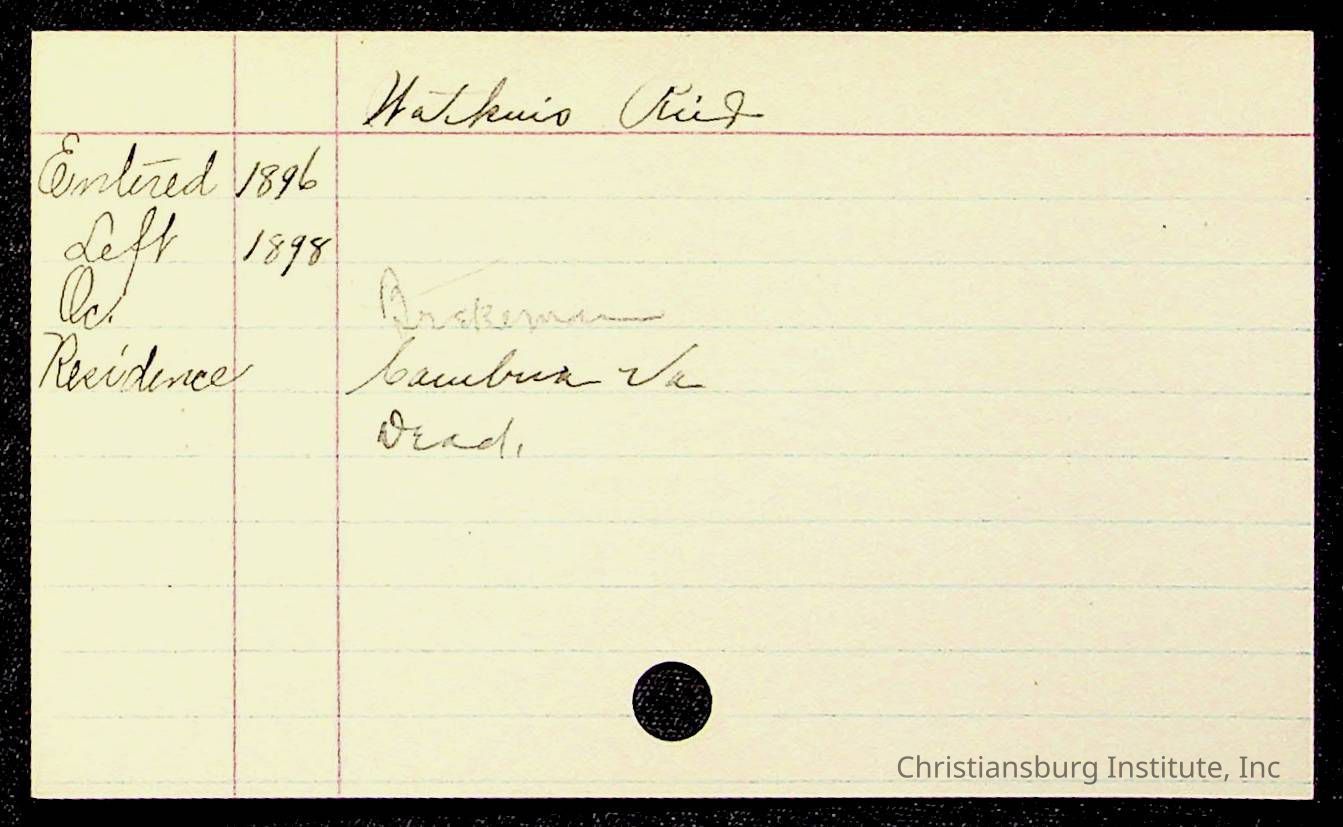 Watkins Reid
Entered 1896
Left 1898
Oc. Brakeman
Residence Cambria Va
Dead.
Christiansburg Institute, Inc